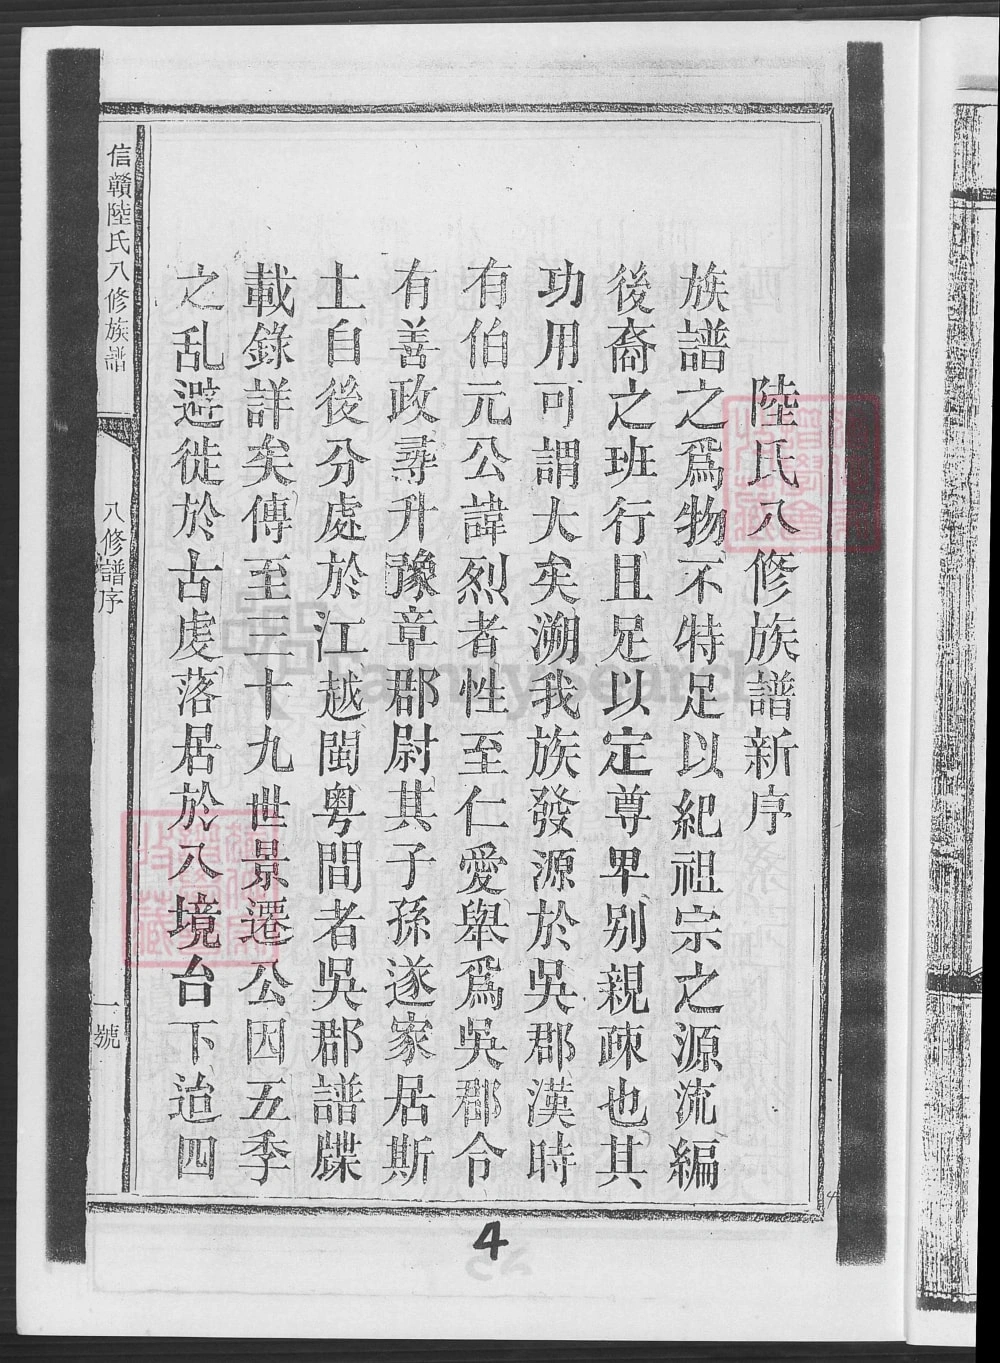 陸氏八修族譜新序
族譜之爲物不特足以紀祖宗之源流編
後裔之班行且足以定尊卑別親疎也其
功用可謂大矣溯我族發源於吳郡漢時
有伯元公諱烈者性至仁愛舉爲吳郡令
有善政尋升豫章郡尉其子孫遂家居斯
土自後分處於江越閩粤間者吳郡譜牒
載錄詳矣傳至三十九世景遷公因五季
之乱避徙於古虔落居於八境台下迨四
信贛陸氏八修族譜
八修譜序
一號
4
4
FamilySearch